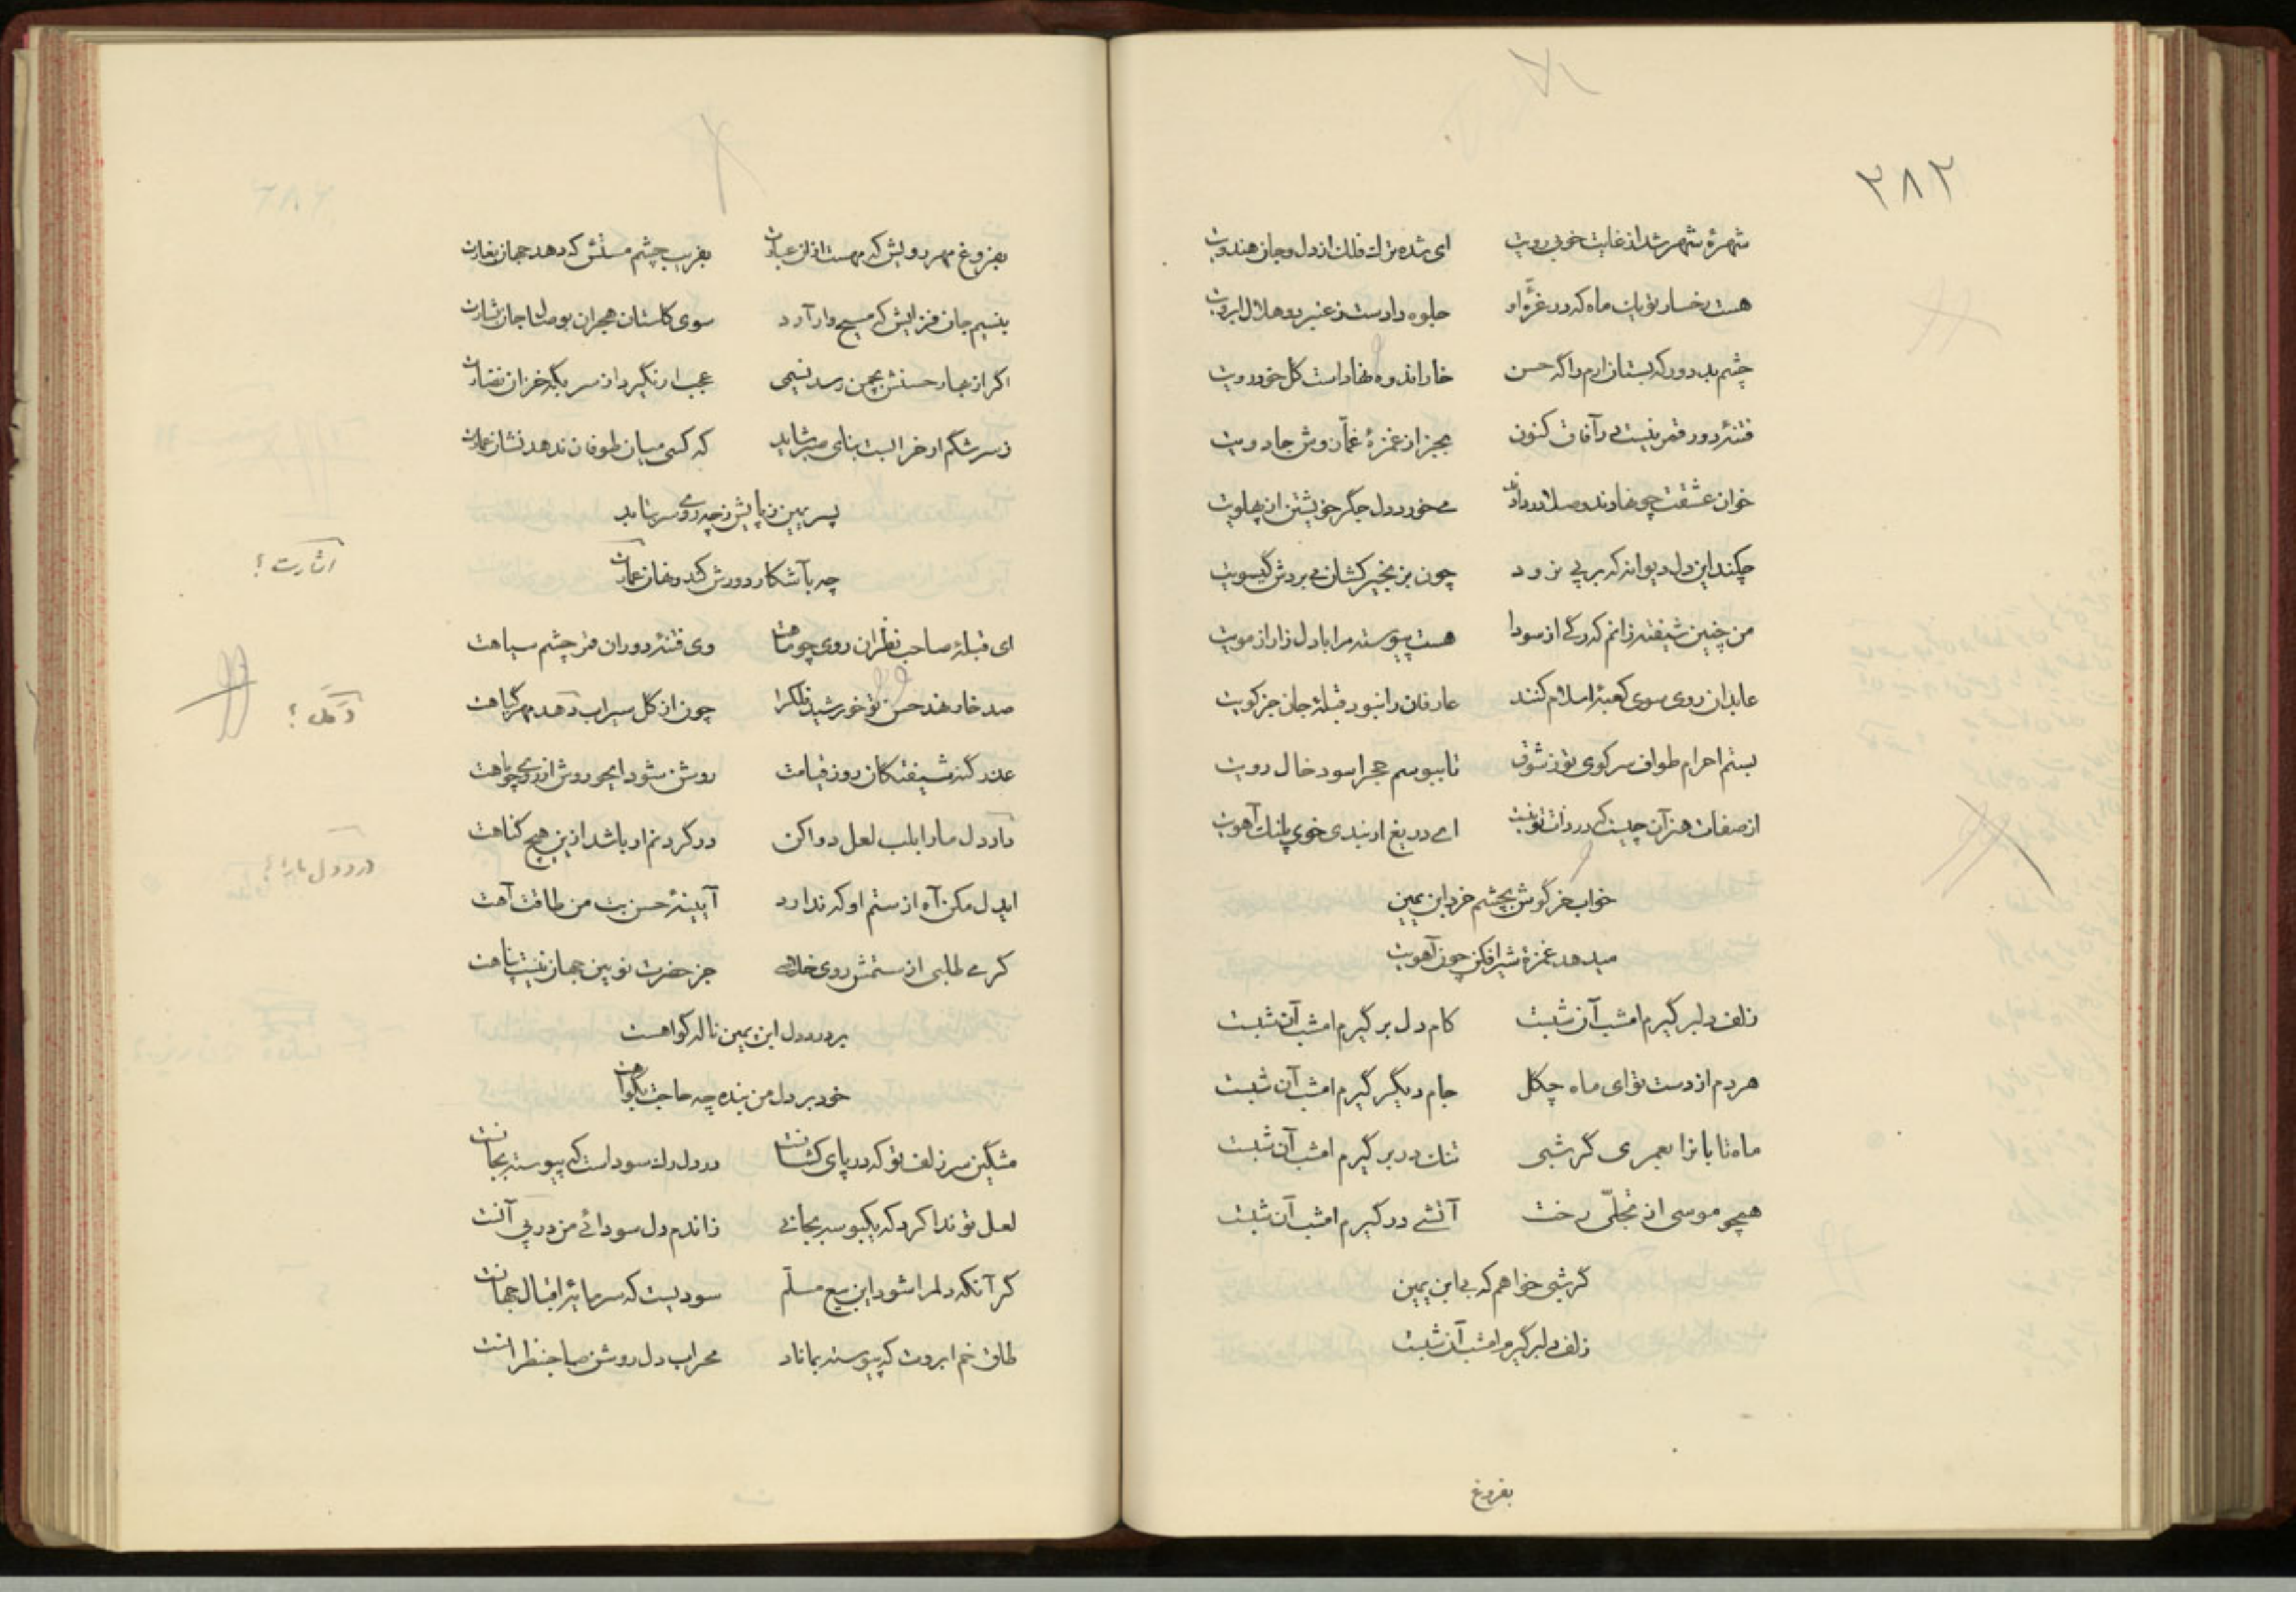 ۲۸۲
شهرهٔ شهر شد از غایت خوبی رویت ای شده ترک فلک از دل و جان هندویت
هست رخسار تو یک ماه که در غرّهٔ او جلوه دادست ز عنبر دو هلال ابرویت
چشم بد دور که بستان ارم را گه حسن خار اندوه نهادست گل خودرویت
فتنهٔ دور قمر نیست در آفاق کنون بجز از غمزهٔ غمّازوش جادویت
خوان عشقت چو نهادند و صلا در دادند می خورد دل جگر خویشتن از پهلویت
چکند این دل دیوانه که بر پی نرود چون بزنجیر کشان می بردش گیسویت
من چنین شیفته زانم که رگی از سودا هست پیوسته مرا با دل زار از مویت
عابدان روی سوی کعبهٔ اسلام کنند عارفان را نبود قبلهٔ جان جز کویت
بستم احرام طواف سر کوی تو ز شوق تا ببوسم حجر اسود خال رویت
از صفات هنر آن چیست که در ذات تو نیست ای دریغ ار نبدی خوی پلنگ آهویت
خواب خرگوش بچشم خرد ابن یمین
میدهد غمزهٔ شیرافکن چون آهویت
زلف دلبر گیرم امشب آن شبست کام دل بر گیرم امشب آن شبست
هر دم از دست تو ای ماه چگل جام دیگر گیرم امشب آن شبست
ماه تابانرا بعمری گر شبی تنک در بر گیرم امشب آن شبست
همچو موسی از تجلّی رخت آتشی در گیرم امشب آن شبست
گر شبی خواهم که بی ابن یمین
زلف دلبر گیرم امشب آن شبست
بفروغ
بفروغ مهر رویش که مهست ازان عبارت بفریب چشم مستش که دهد جهان بغارت
بنسیم جان فزایش که مسیح وار آرد سوی کشتگان هجران بوصال جان بشارت
اگر از بهار حسنش بچمن رسد نسیمی عجب ار نگیرد از سر بگه خزان نضارت
ز سرشکم ار خرابست بنای صبر شاید که کسی میان طوفان ندهد نشان عمارت
پسر یمین ز پایش ز چه روی سر بتابد
چه بآشکار دورش کند و نهان
اشارت؟
ای قبلهٔ صاحب نظران روی چو ماهت وی فتنهٔ دوران قمر چشم سیاهت
صد خار نهد حسن تو خورشید فلکرا چون از گل سیراب دمد مهر گیاهت
عذر گنه شیفتگان روز قیامت روشن شود ایجور وش از روی چو ماهت
درد دل ما را بلب لعل دوا کن در گردنم ار باشد ازین هیچ گناهت
درد دل ما را؟
ایدل مکن آه از ستم او که ندارد آیینهٔ حسن بت من طاقت آهت
گر می طلبی از ستمش روی خلاصی جز حضرت نویین جهان نیست پناهت
بر درد دل ابن یمین ناله گواهست
خود بر دل من بنده چه حاجت بگواهت
مشگین سر زلف تو که در پای کشانست در دل رک سوداست که پیوسته بجانست
لعل تو ندا کرد که یکبوسه بجانی زاندم دل سودائی من در پی آنست
گر آنکه دلم را شود این بیع مسلّم سودیست که سرمایهٔ اقبال جهانست
طاق خم ابروت که پیوسته بماناد محراب دل روشن صاحبنظرانست